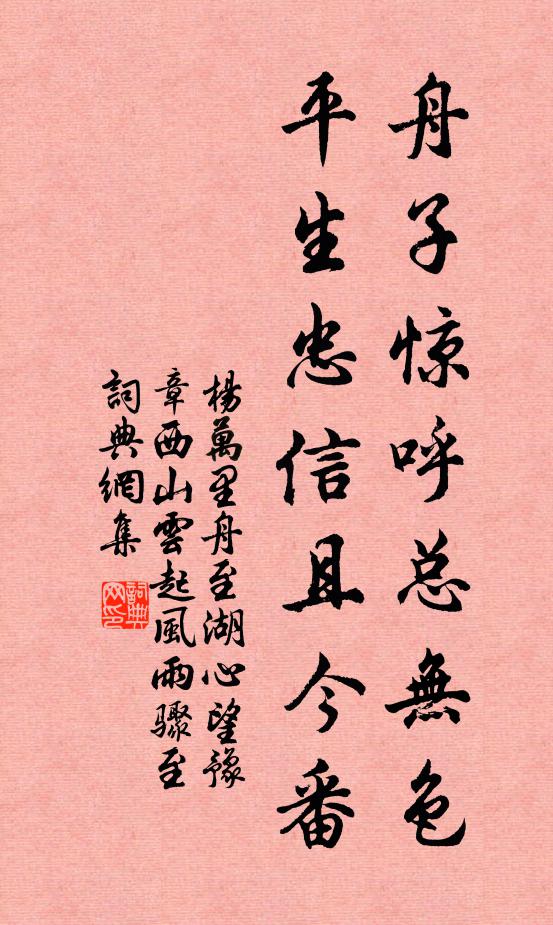 舟子惊呼总無色
平生忠信且今番
楊萬里舟至湖心望豫
章西山雲起風雨驟至
詞典網集
詞典
网印